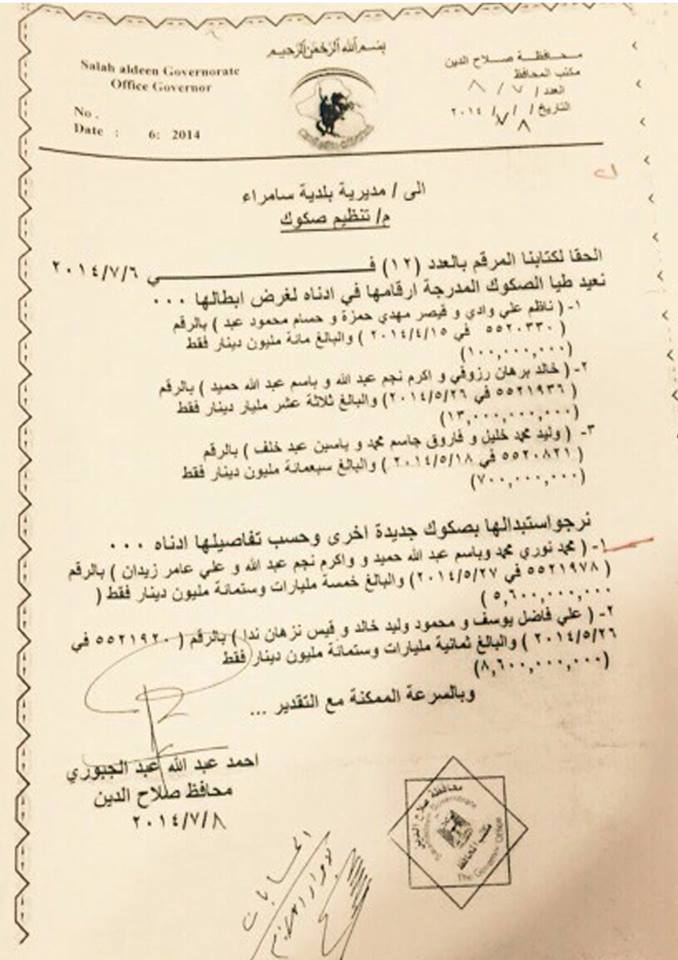 بسم الله الرحمن الرحيم
Salah aldeen Governorate
Office Governor
No .
Date : 6: 2014
محافظة صلاح الدين
مكتب المحافظ
العدد / ٨/٧
التاريخ / ٧/٨ / ٢٠١٤
الى / مديرية بلدية سامراء
م/ تنظيم صكوك
الحقا لكتابنا المرقم بالعدد (١٢) فــــــي ٢٠١٤/٧/٦
نعيد طيا الصكوك المدرجة ارقامها في ادناه لغرض ابطالها ...
١- ( ناظم علي وادي و قيصر مهدي حمزة و حسام محمود عبد ) بالرقم
( ٥٥٢٠٣٣٠ في ٢٠١٤/٤/١٥ ) والبالغ مائة مليون دينار فقط
(١٠٠,٠٠٠,٠٠٠)
٢- ( خالد برهان رزوقي و اكرم نجم عبد الله و باسم عبد الله حميد ) بالرقم
( ٥٥٢١٩٣٦ في ٢٠١٤/٥/٢٦) والبالغ ثلاثة عشر مليار دينار فقط
(١٣,٠٠٠,٠٠٠,٠٠٠)
٣- ( وليد محمد خليل و فاروق جاسم محمد و ياسين عبد خلف ) بالرقم
( ٥٥٢٠٨٢١ في ٢٠١٤/٥/١٨ ) والبالغ سبعمائة مليون دينار فقط
(٧٠٠,٠٠٠,٠٠٠)
نرجو استبدالها بصكوك جديدة اخرى وحسب تفاصيلها ادناه ...
١- ( محمد نوري محمد وباسم عبد الله حميد و واكرم نجم عبد الله و علي عامر زيدان ) بالرقم
( ٥٥٢١٩٧٨ في ٢٠١٤/٥/٢٧) والبالغ خمسة مليارات وستمائة مليون دينار فقط (
٥,٦٠٠,٠٠٠,٠٠٠)
٢- ( علي فاضل يوسف و محمود وليد خالد و قيس نزهان ندا ) بالرقم ( ٥٥٢١٩٢٠ في
٢٠١٤/٥/٢٦ ) والبالغ ثمانية مليارات وستمائة مليون دينار فقط
(٨,٦٠٠,٠٠٠,٠٠٠)
وبالسرعة الممكنة مع التقدير ...
احمد عبد الله عبد الجبوري
محافظ صلاح الدين
٢٠١٤/٧/٨
محافظة صلاح الدين
Governorate
مكتب المحافظ
The Governor Office
الحسابات